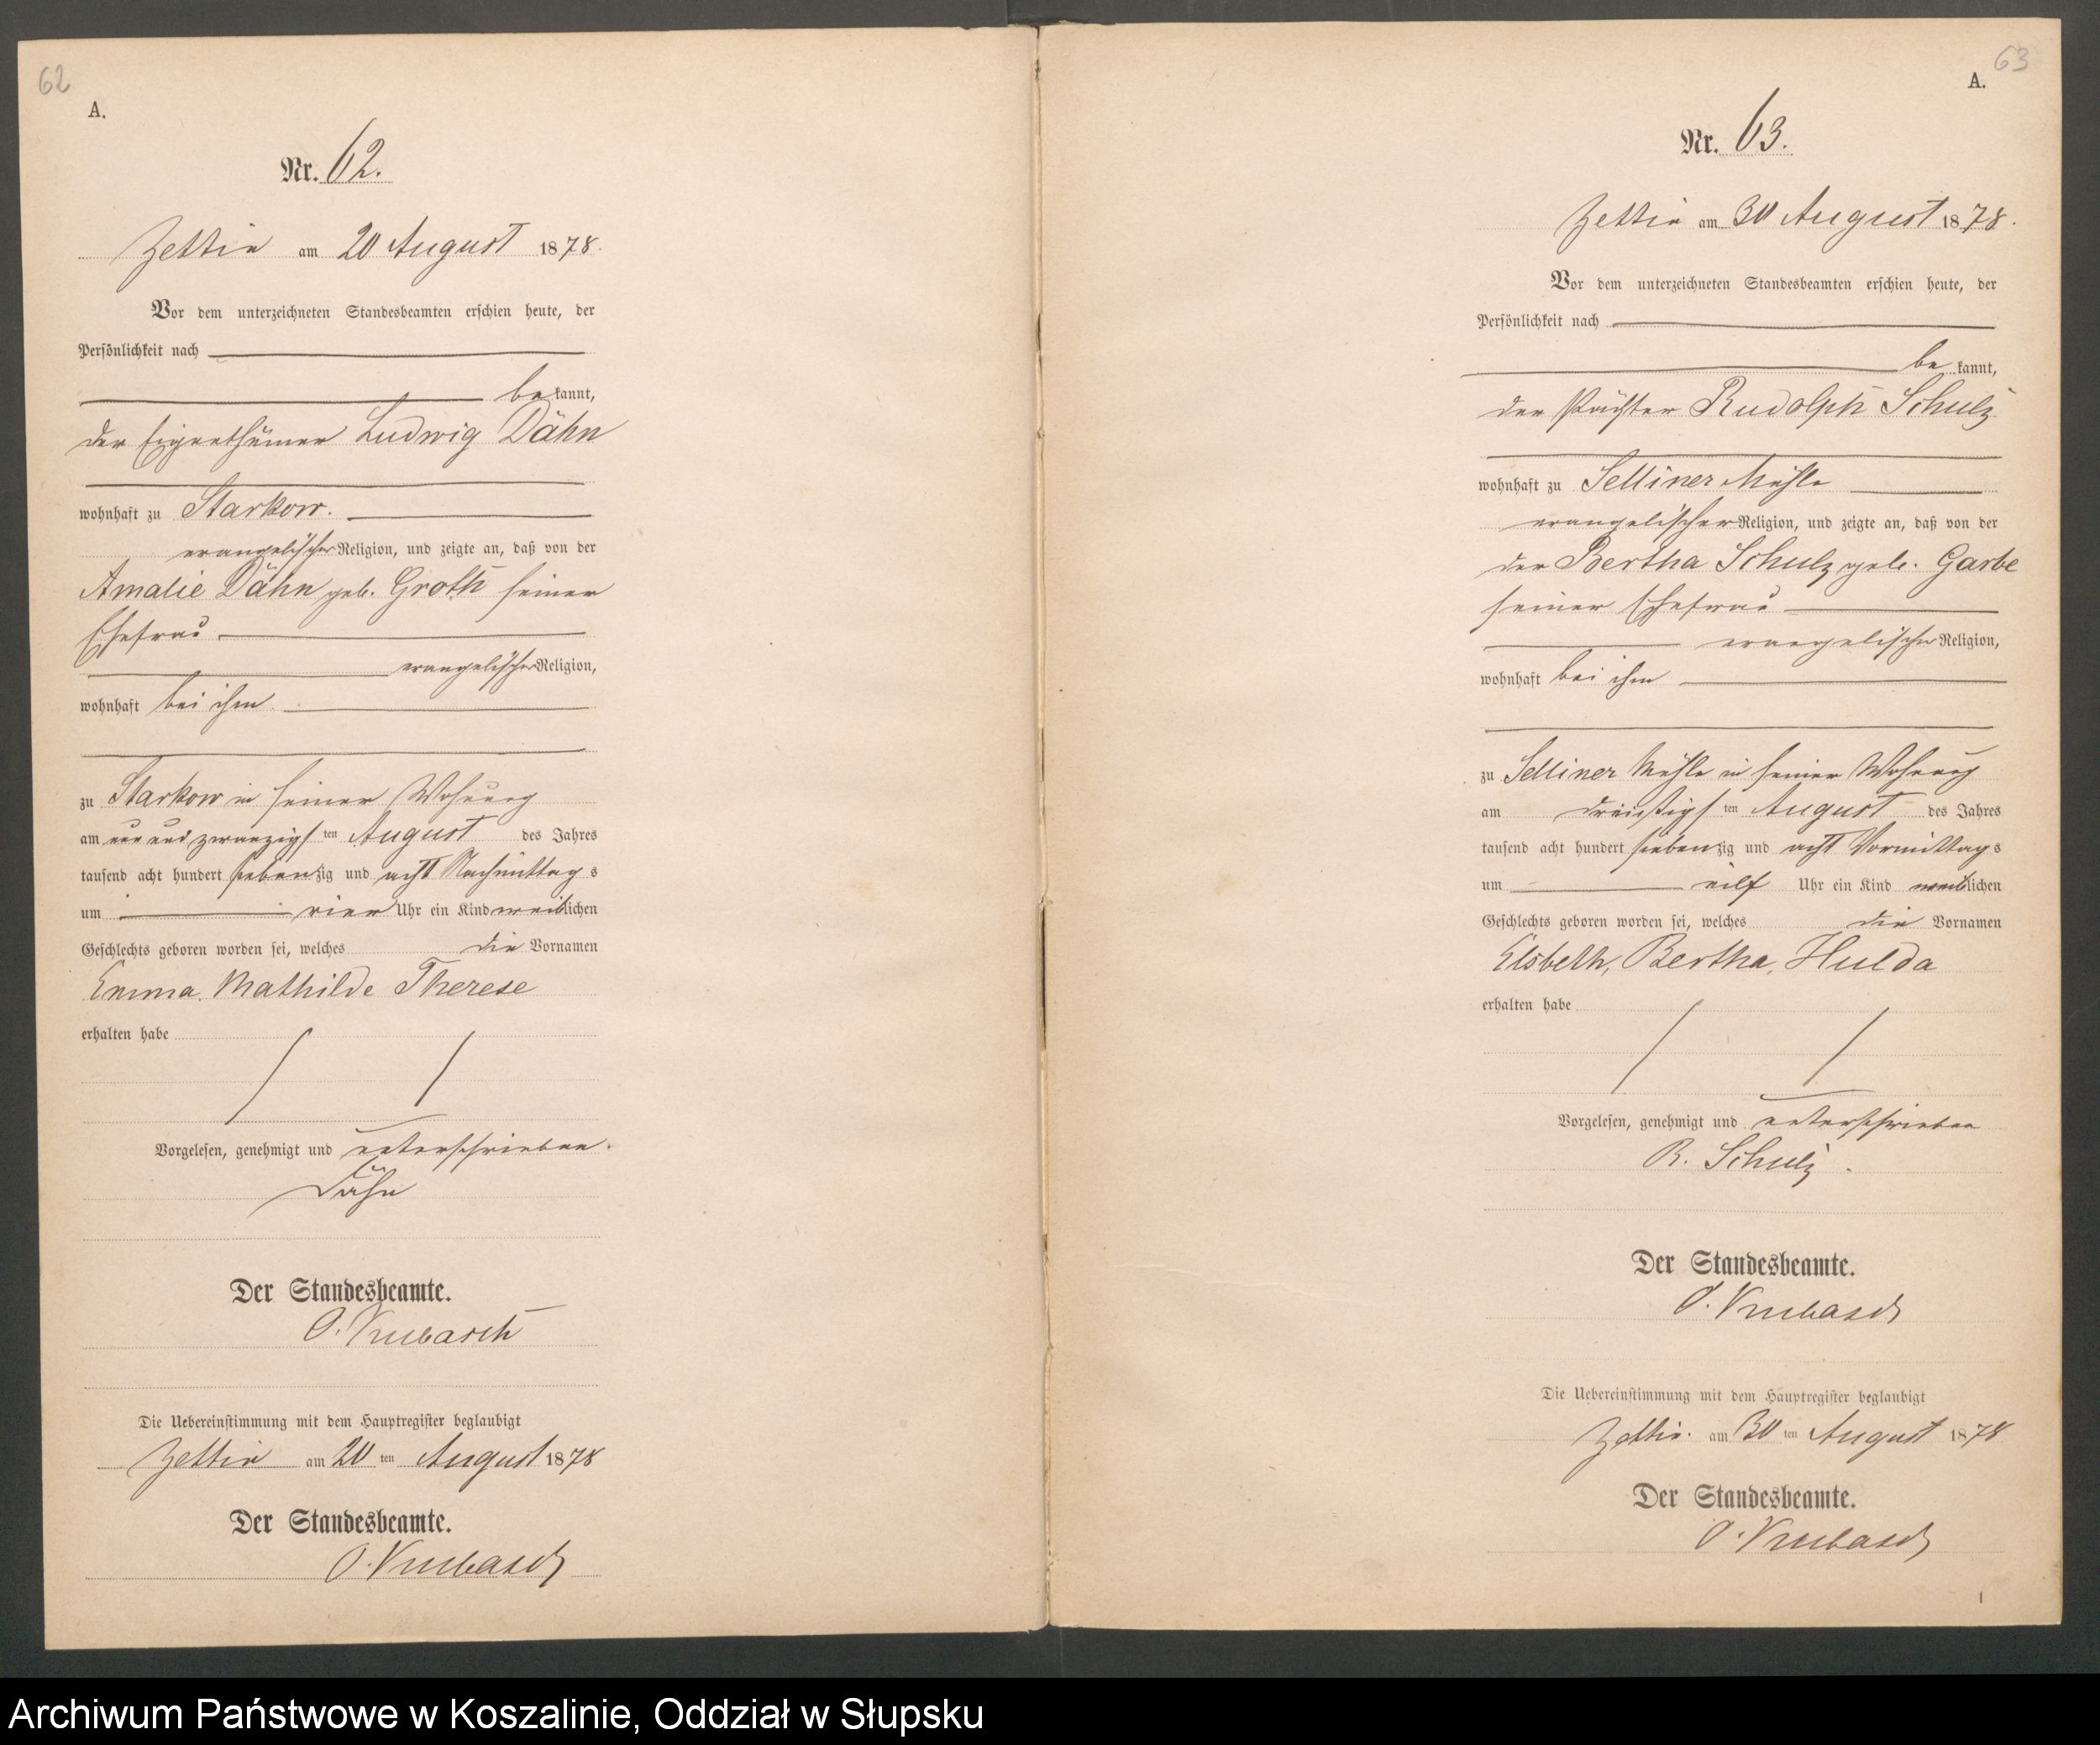 62
A.
Nr. 62.
Zettin am 20 August 1878.
Vor dem unterzeichneten Standesbeamten erschien heute, der
Persönlichkeit nach
bekannt,
der Eigenthümer Ludwig Dähn
wohnhaft zu Starkow.
evangelischer Religion, und zeigte an, daß von der
Amalie Dähn geb. Groth seiner
Ehefrau
evangelischer Religion,
wohnhaft bei ihm
zu Starkow in seiner Wohnung
am und zwanzigsten August des Jahres
tausend acht hundert siebenzig und acht Nachmittags
um vier Uhr ein Kind weiblichen
Geschlechts geboren worden sei, welches die Vornamen
Emma, Mathilde Therese
erhalten habe
Vorgelesen, genehmigt und unterschrieben.
Dähn
Der Standesbeamte.
O.
Die Uebereinstimmung mit dem Hauptregister beglaubigt
Zettin am 20ten August 1878
Der Standesbeamte.
O.
63
A.
Nr. 63.
Zettin am 30 August 1878.
Vor dem unterzeichneten Standesbeamten erschien heute, der
Persönlichkeit nach
bekannt,
der Pächter Rudolph Schulz
wohnhaft zu Selliner Mühle
evangelischer Religion, und zeigte an, daß von der
der Bertha Schulz geb. Garbe
seiner Ehefrau
evangelischer Religion,
wohnhaft bei ihm
zu Selliner Mühle in seiner Wohnung
am dreißigsten August des Jahres
tausend acht hundert siebenzig und acht Vormittags
um eilf Uhr ein Kind weiblichen
Geschlechts geboren worden sei, welches die Vornamen
Elsbeth, Bertha, Hulda
erhalten habe
Vorgelesen, genehmigt und unterschrieben
R. Schulz.
Der Standesbeamte.
O.
Die Uebereinstimmung mit dem Hauptregister beglaubigt
Zettin am 30ten August 1878
Der Standesbeamte.
O.
Archiwum Państwowe w Koszalinie, Oddział w Słupsku